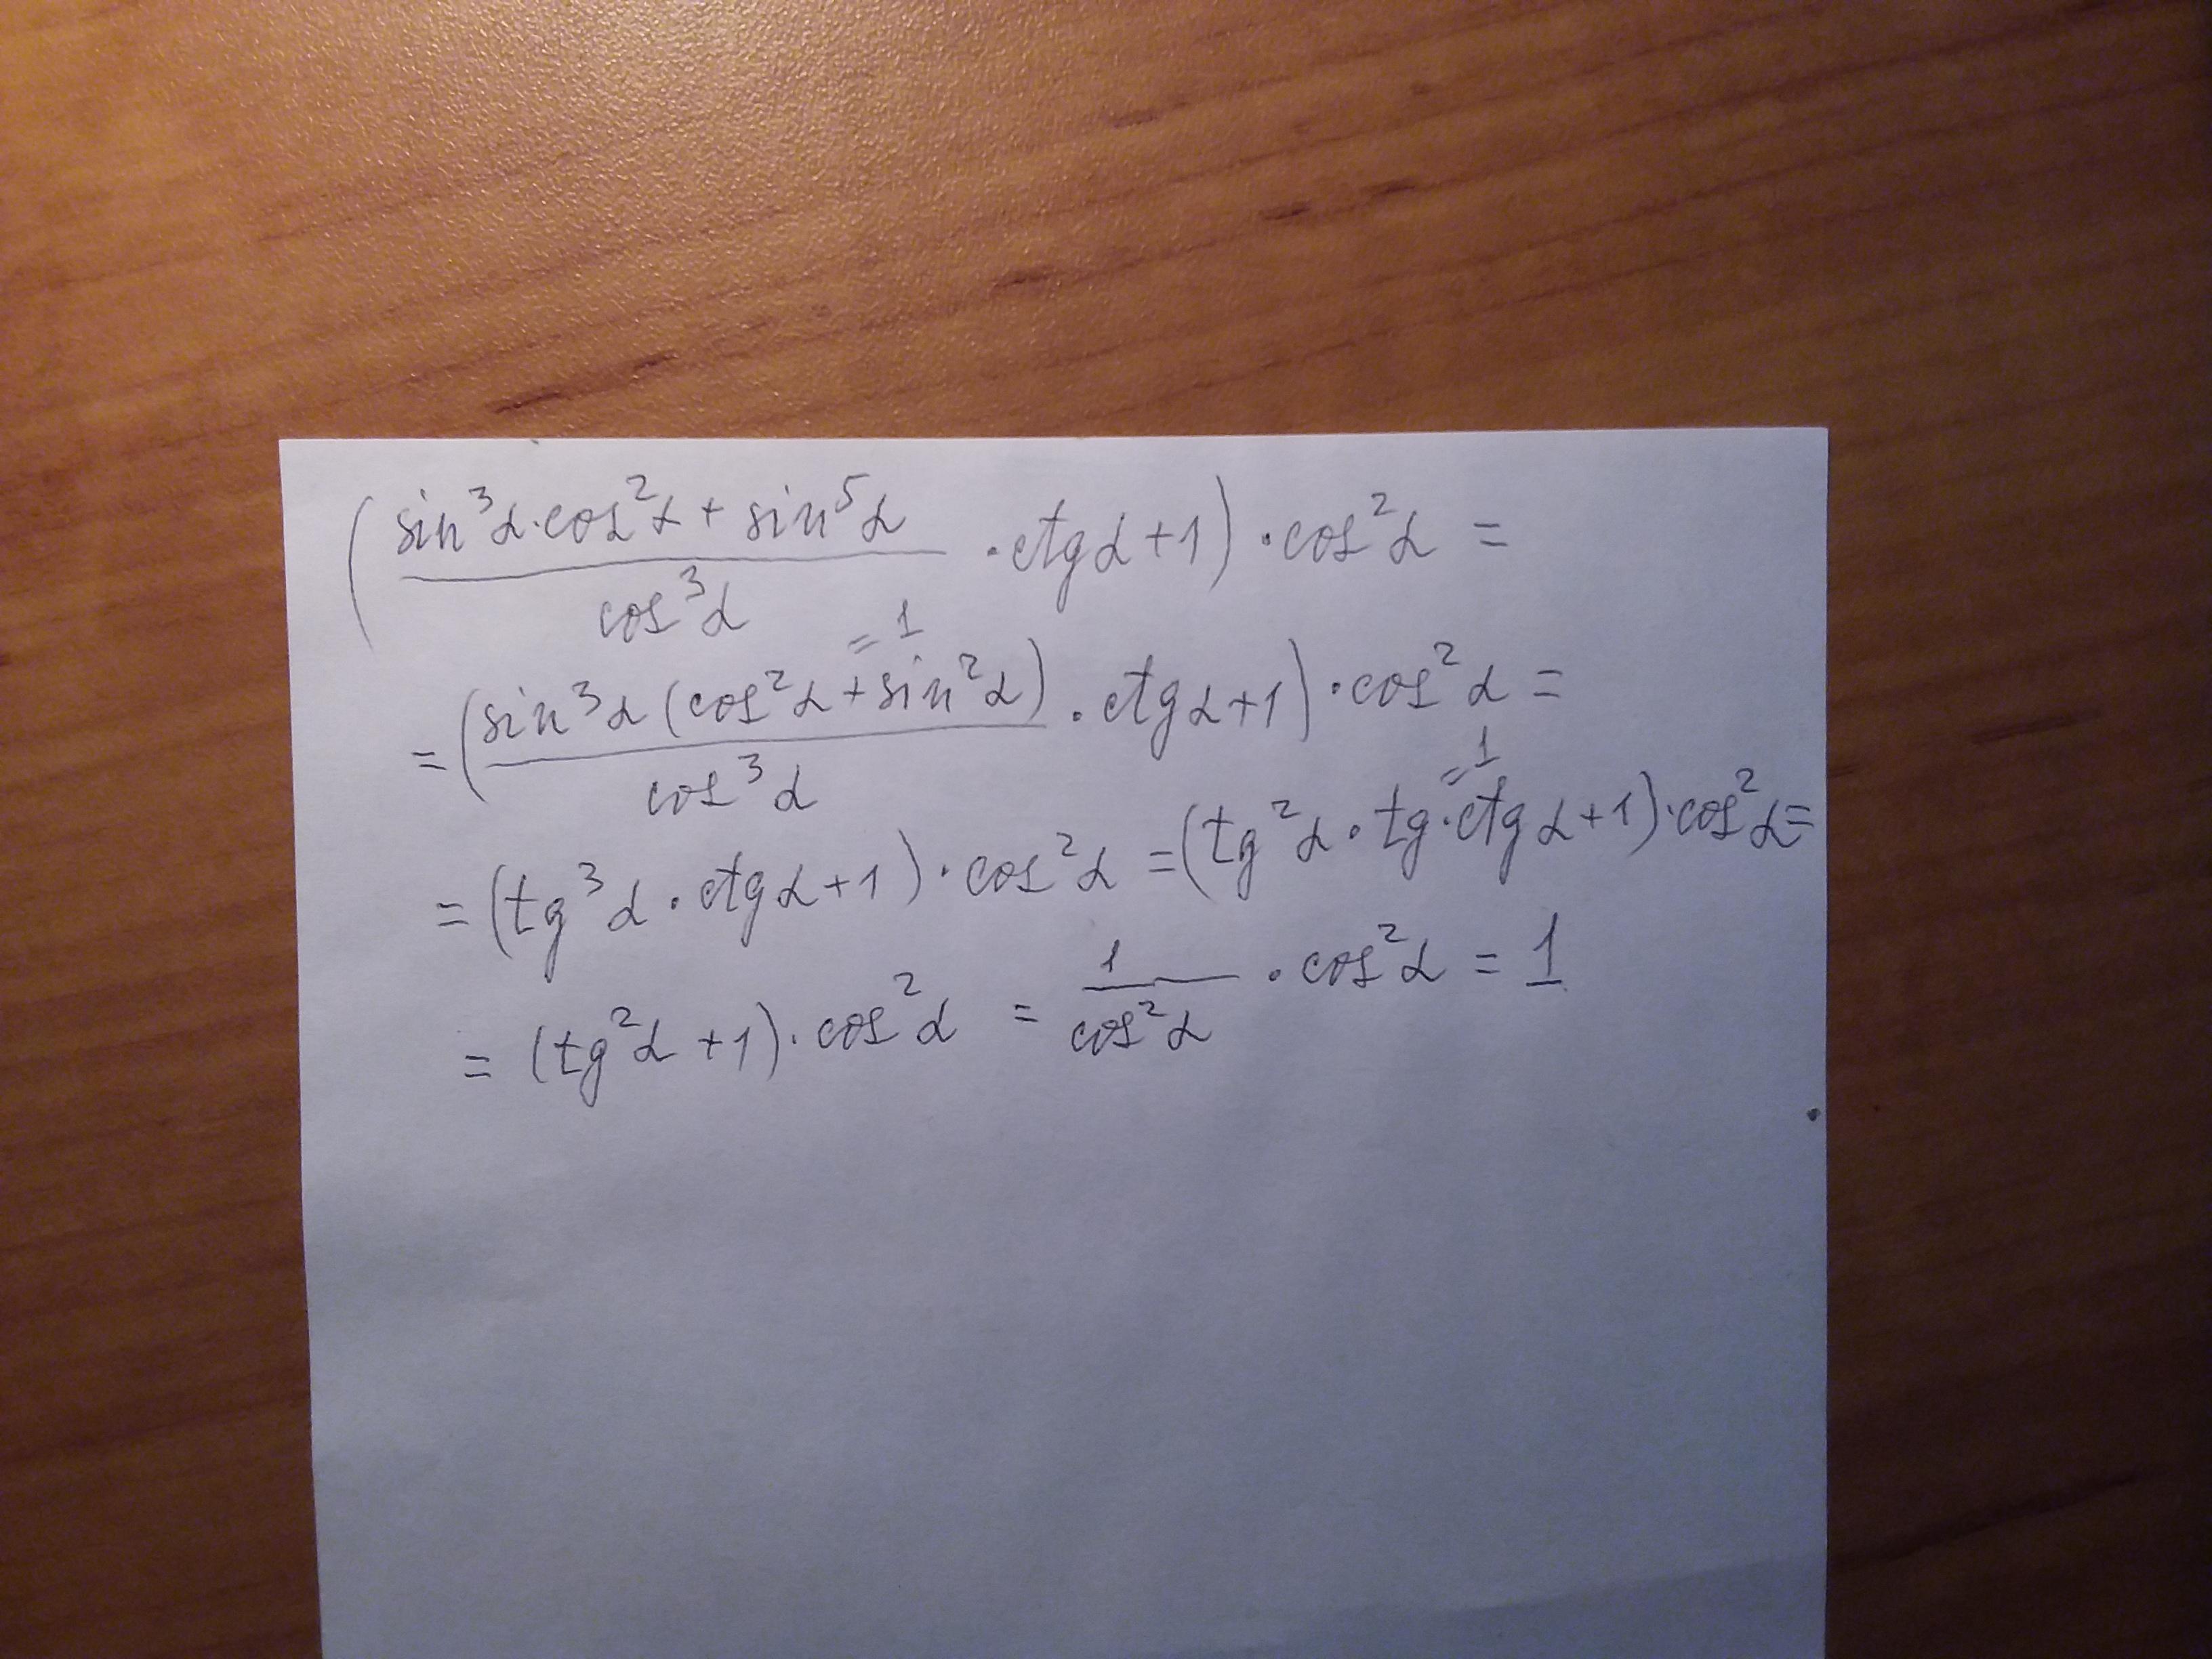 (sin³α·cos²α + sin⁵α / cos³α · ctgα+1) · cos²α =
= 1
= (sin³α (cos²α + sin²α) / cos³α · ctgα+1) · cos²α =
= 1
= (tg³α · ctgα+1) · cos²α = (tg²α · tg·ctgα+1)·cos²α =
= (tg²α +1) · cos²α = 1 / cos²α · cos²α = 1